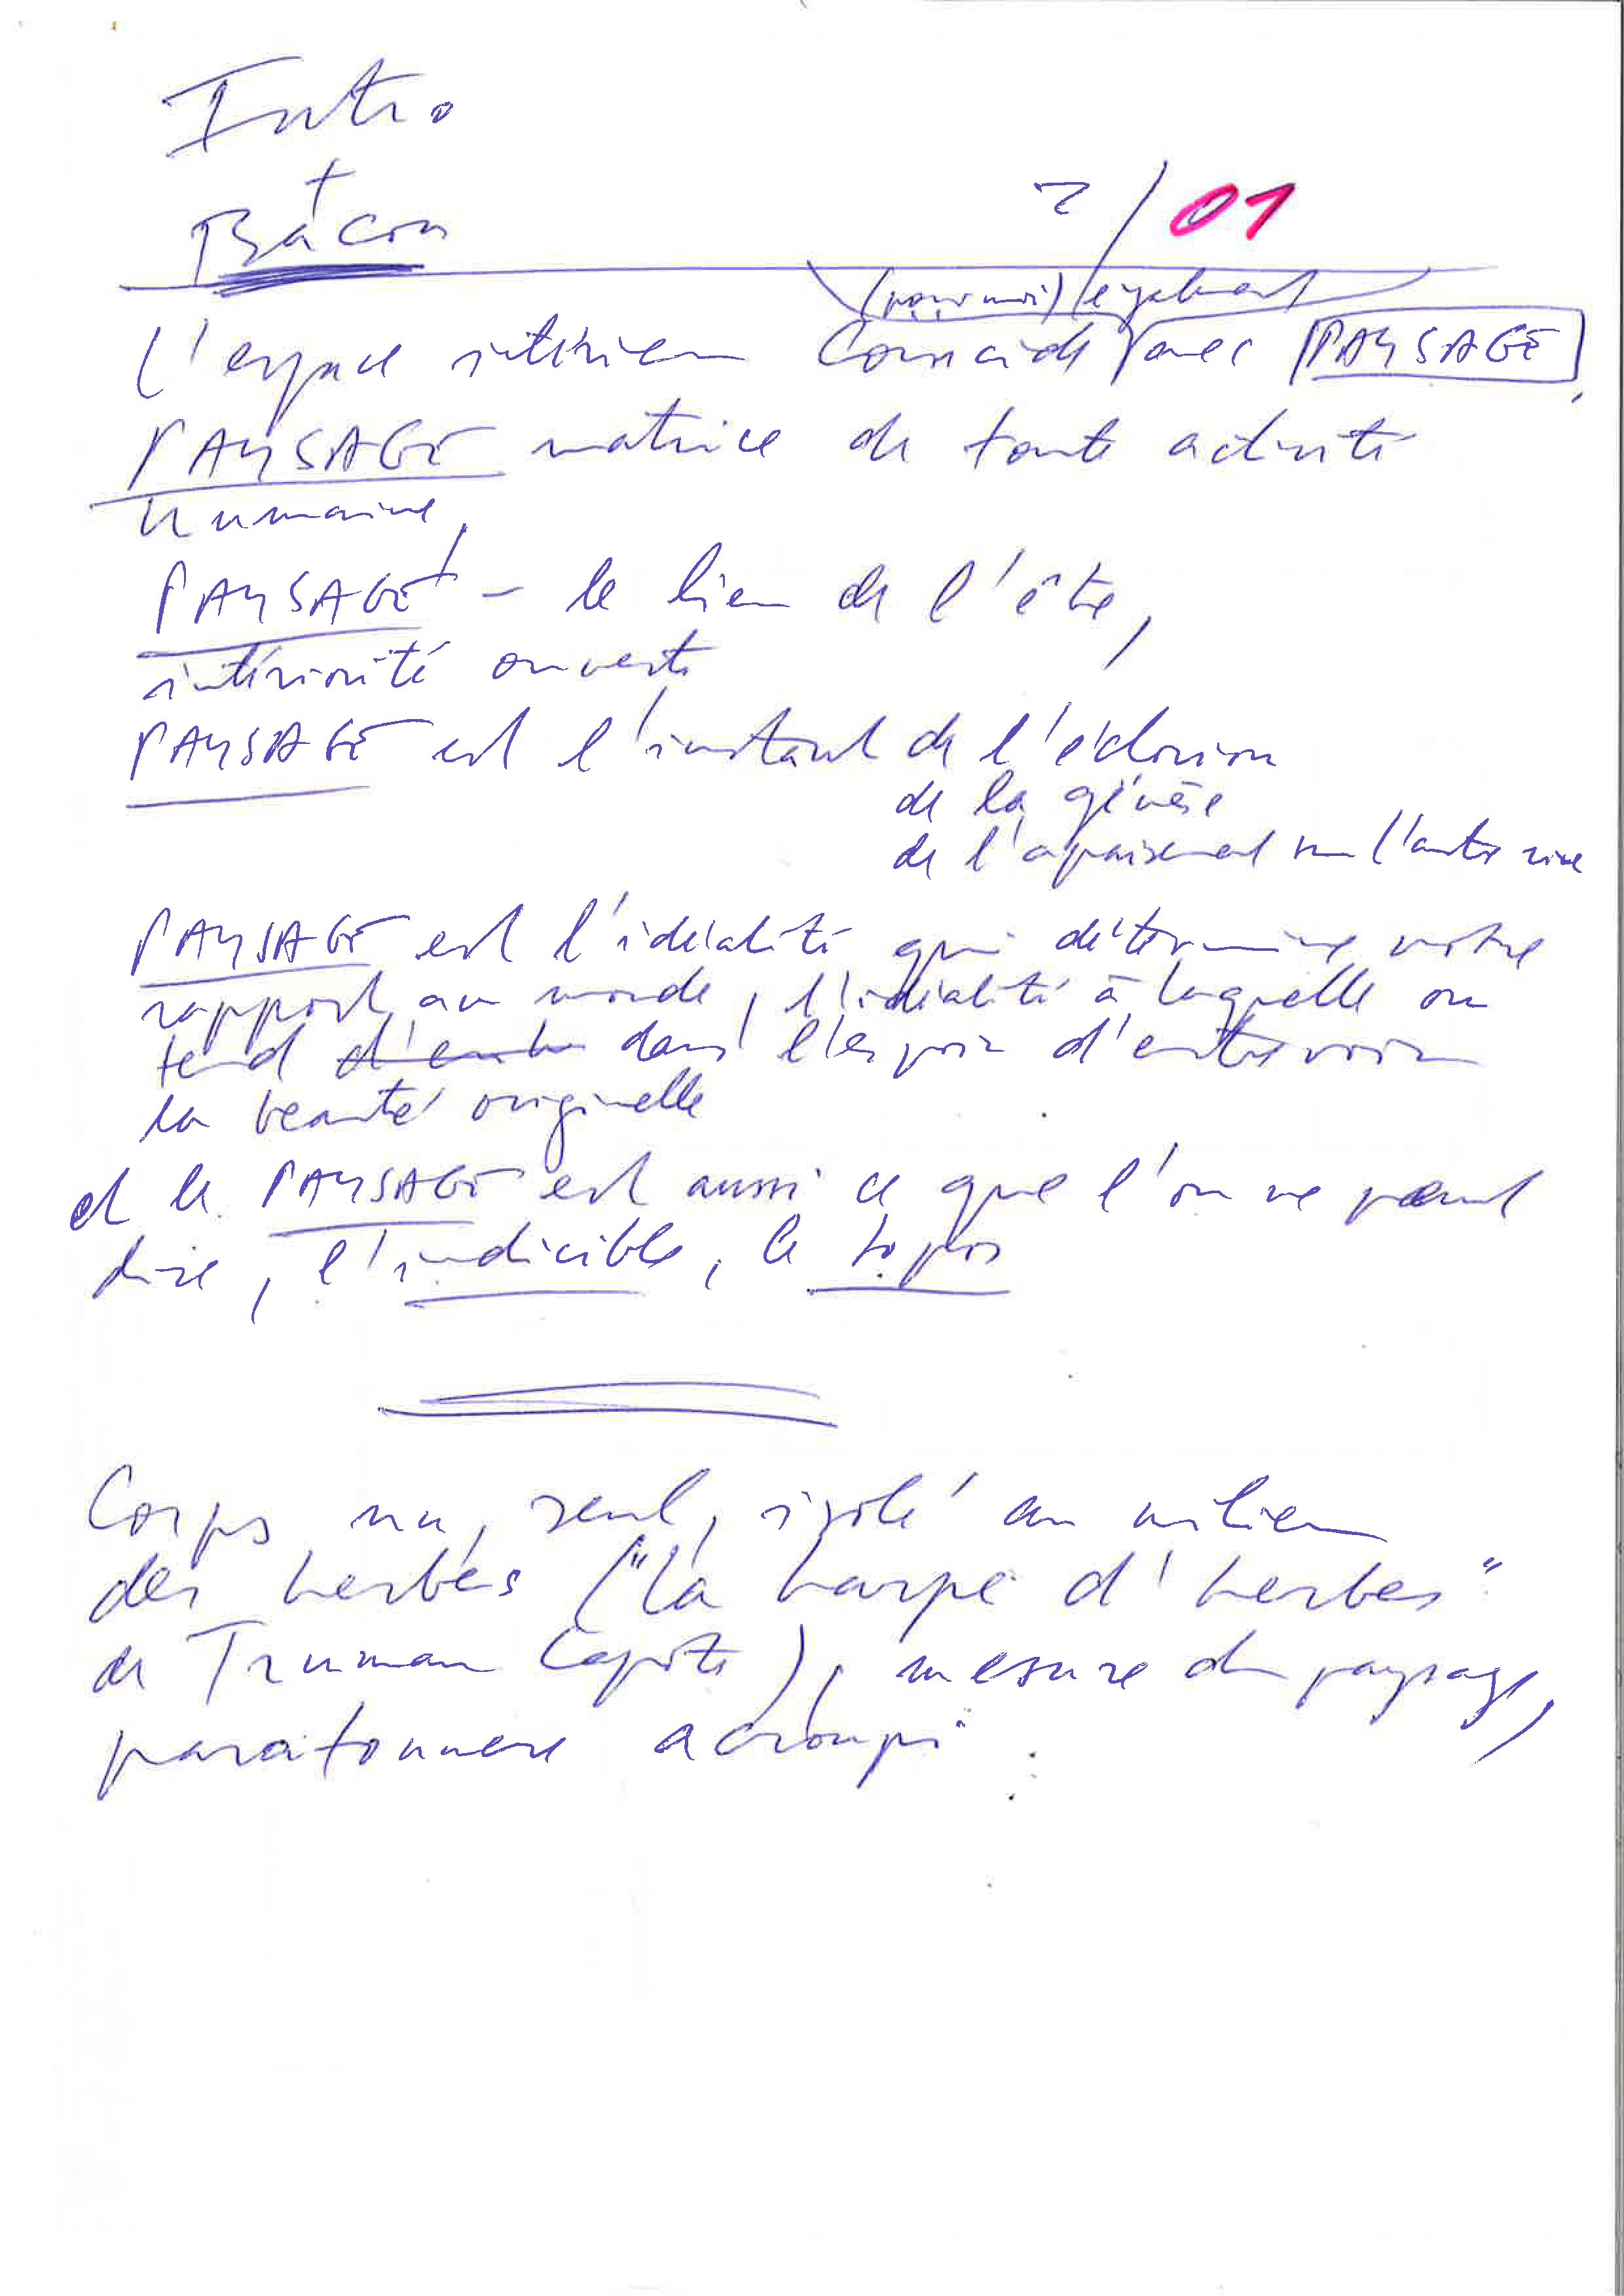 Intro
+
Bacon
2/01
(pour moi) également
L'espace intérieur coïncide avec PAYSAGE,
PAYSAGE matrice de toute activité
humaine,
PAYSAGE - le lieu de l'être,
intériorité ouverte
PAYSAGE est l'instant de l'éclosion
de la génèse
de l'apaisement sur l'autre rive
PAYSAGE est l'idéalité qui détermine notre
rapport au monde, l'idéalité à laquelle on
tend dans l'espoir d'entrevoir
la beauté originelle
et le PAYSAGE est aussi ce que l'on ne peut
dire, l'indicible, le topos
Corps nu, seul, isolé au milieu
des herbes ("la harpe d'herbes"
de Truman Capote), mesure du paysage,
paratonnere acroupi